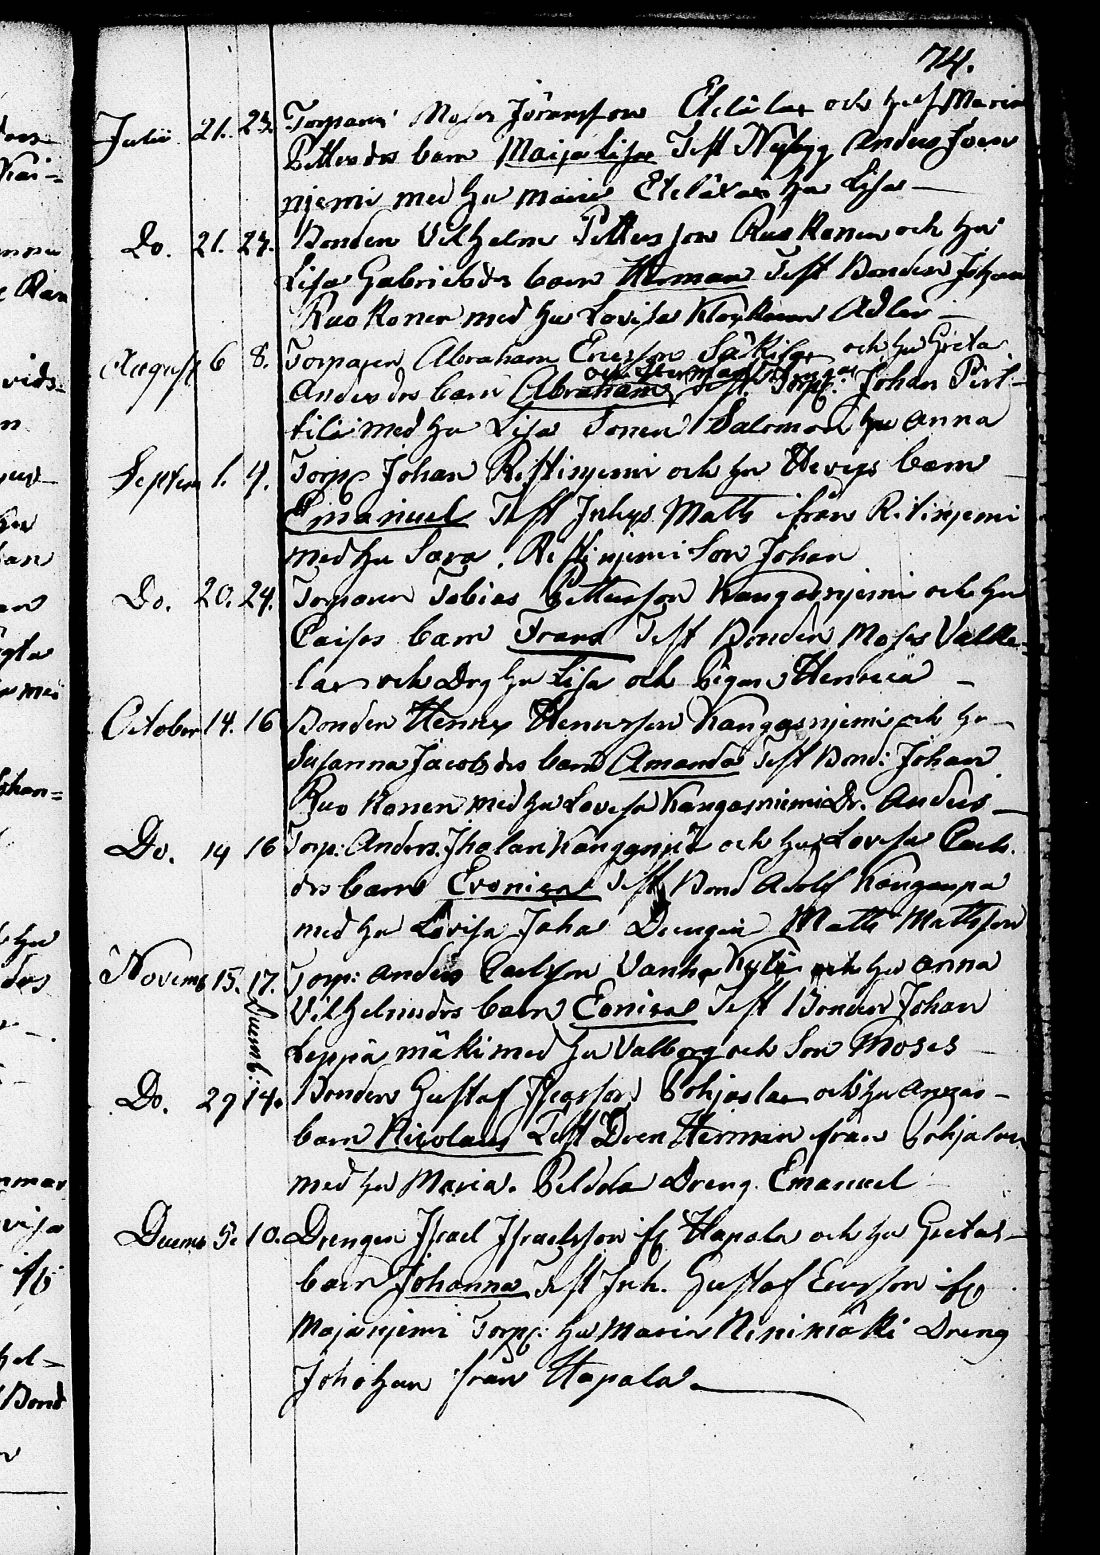 74.
Julii 21. 23. Torparn Moses Göransson Etelälax och hu Maria
Pettersdr barn Maija Lisa Test Nybygg Anders Joen
njemi med hu Maria Etelälax hu Lisa
Do. 21. 27. Bonden Vilhelm Pettersson Ruokonen och hu
Lisa Gabrielsdr barn Herman Test Bonden Johan
Ruokonen med hu Lovisa Adler
August 6 8. Torparen Abraham Ericsson och hu Greta
Andersdr barn Abraham Test. Torp: Johan Pirt-
tilä med hu Lisa Sonen Salomon hu Anna
Septem 1. 4. Torp Johan Ristinjemi och hu barn
Emanuel Test Inhys Matts ifrån Ritinjemi
med hu Sara. Ristinjemi Son Johan
Do. 20. 24. Torparen Tobias Pettersson Kangasnjemi och hu
Caisas barn Frans Test Bonden Moses Valke-
lax och Drg hu Lisa och Pigan Henrica
October 14. 16 Bonden Henric Henricsson Kangasnjemi och hu
Susanna Jacobsdr barn Amanda Test Bond: Johan
Ruokonen med hu Lovisa Kangasniemi Dr. Anders
Do. 14 16 Torp: Anders och hu Lovisa Carls
drs barn Test Bond Adolf Kangaspä
med hu Lovisa Drengen Matts Mattsson
Novemb 15. 17. Torp: Anders Carlsson Vanhakylä och hu Anna
Vilhelmsdrs barn Test Bonden Johan
Leppämäki med hu Valborg och Son Moses
Do. 29 Decemb. 14. Bonden Gustaf Pohjaslax och hu Annas
barn Nicolaus Test Dren Herman från
med hu Maria. Dreng Emanuel
Decemb 5. 10. Drengen Israel Israelsson if Hapala och hu Gretas
barn Johanna Test Inh. Gustaf Ericsson if
Majanjemi Torp: hu Maria Niinimäki Dreng
Johohan från Hapala